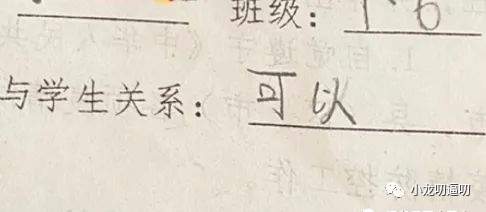 班级：1.6
与学生关系：可以
小龙叨逼叨